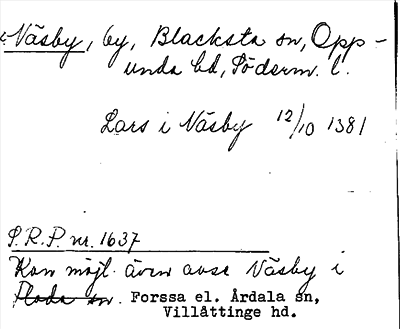 Näsby, by, Blacksta sn, Opp-
unda hd, Söderm. l.
Lars i Näsby 12/10 1381
S.R.P. nr. 1637
Kan möjl. även avse Näsby i
Floda sn. Forssa el. Årdala sn,
Villåttinge hd.